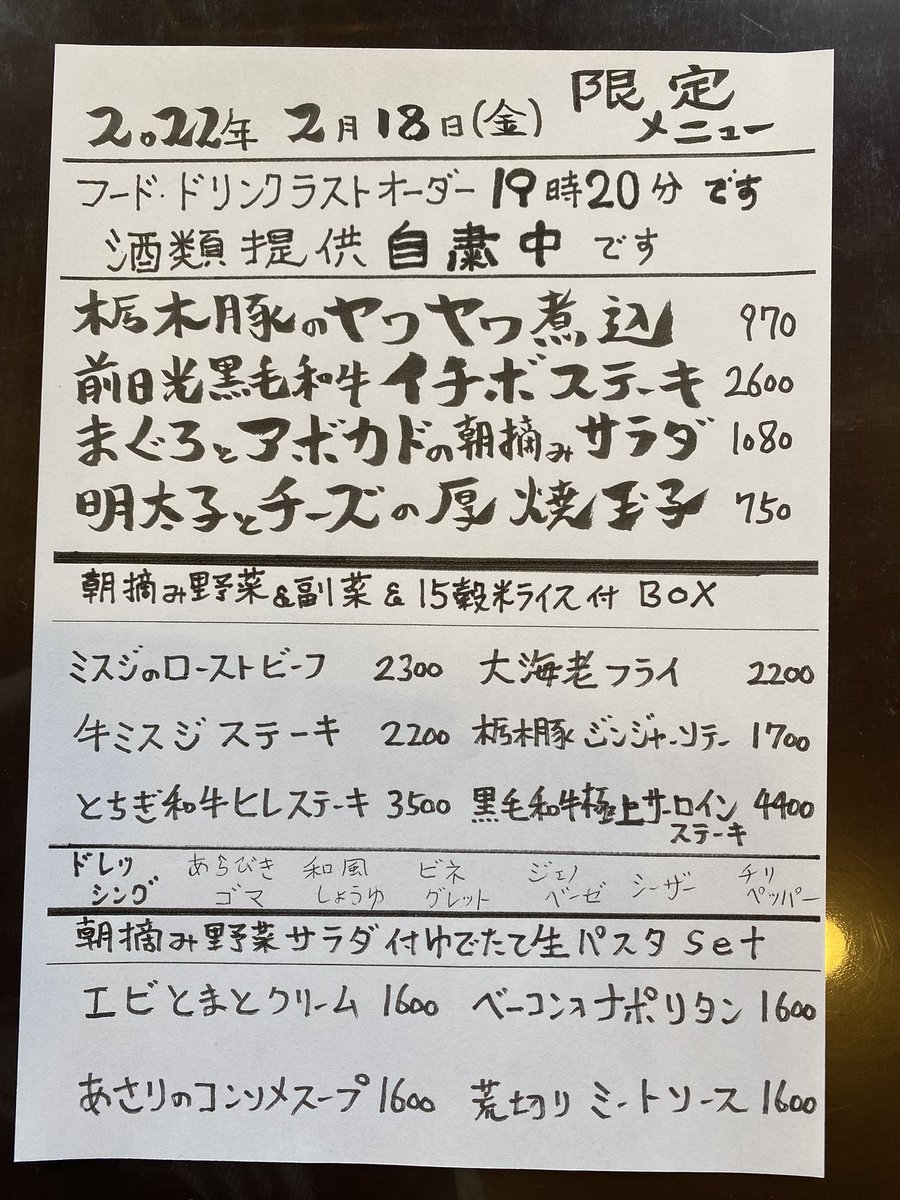 2022年 2月18日(金) 限定メニュー
フード・ドリンクラストオーダー 19時20分 です
酒類提供 自粛中 です
栃木豚のヤワヤワ煮込 970
前日光黒毛和牛イチボステーキ 2600
まぐろとアボカドの朝摘みサラダ 1080
明太子とチーズの厚焼玉子 750
朝摘み野菜&副菜&15穀米ライス付 BOX
ミスジのローストビーフ 2300 大海老フライ 2200
牛ミスジステーキ 2200 栃木豚ジンジャーソテー 1700
とちぎ和牛ヒレステーキ 3500 黒毛和牛極上サーロインステーキ 4400
ドレッシング あらびきゴマ 和風しょうゆ ビネグレット ジェノベーゼ シーザー チリペッパー
朝摘み野菜サラダ付ゆでたて生パスタ set
エビとまとクリーム 1600 ベーコンのナポリタン 1600
あさりのコンソメスープ 1600 荒切りミートソース 1600